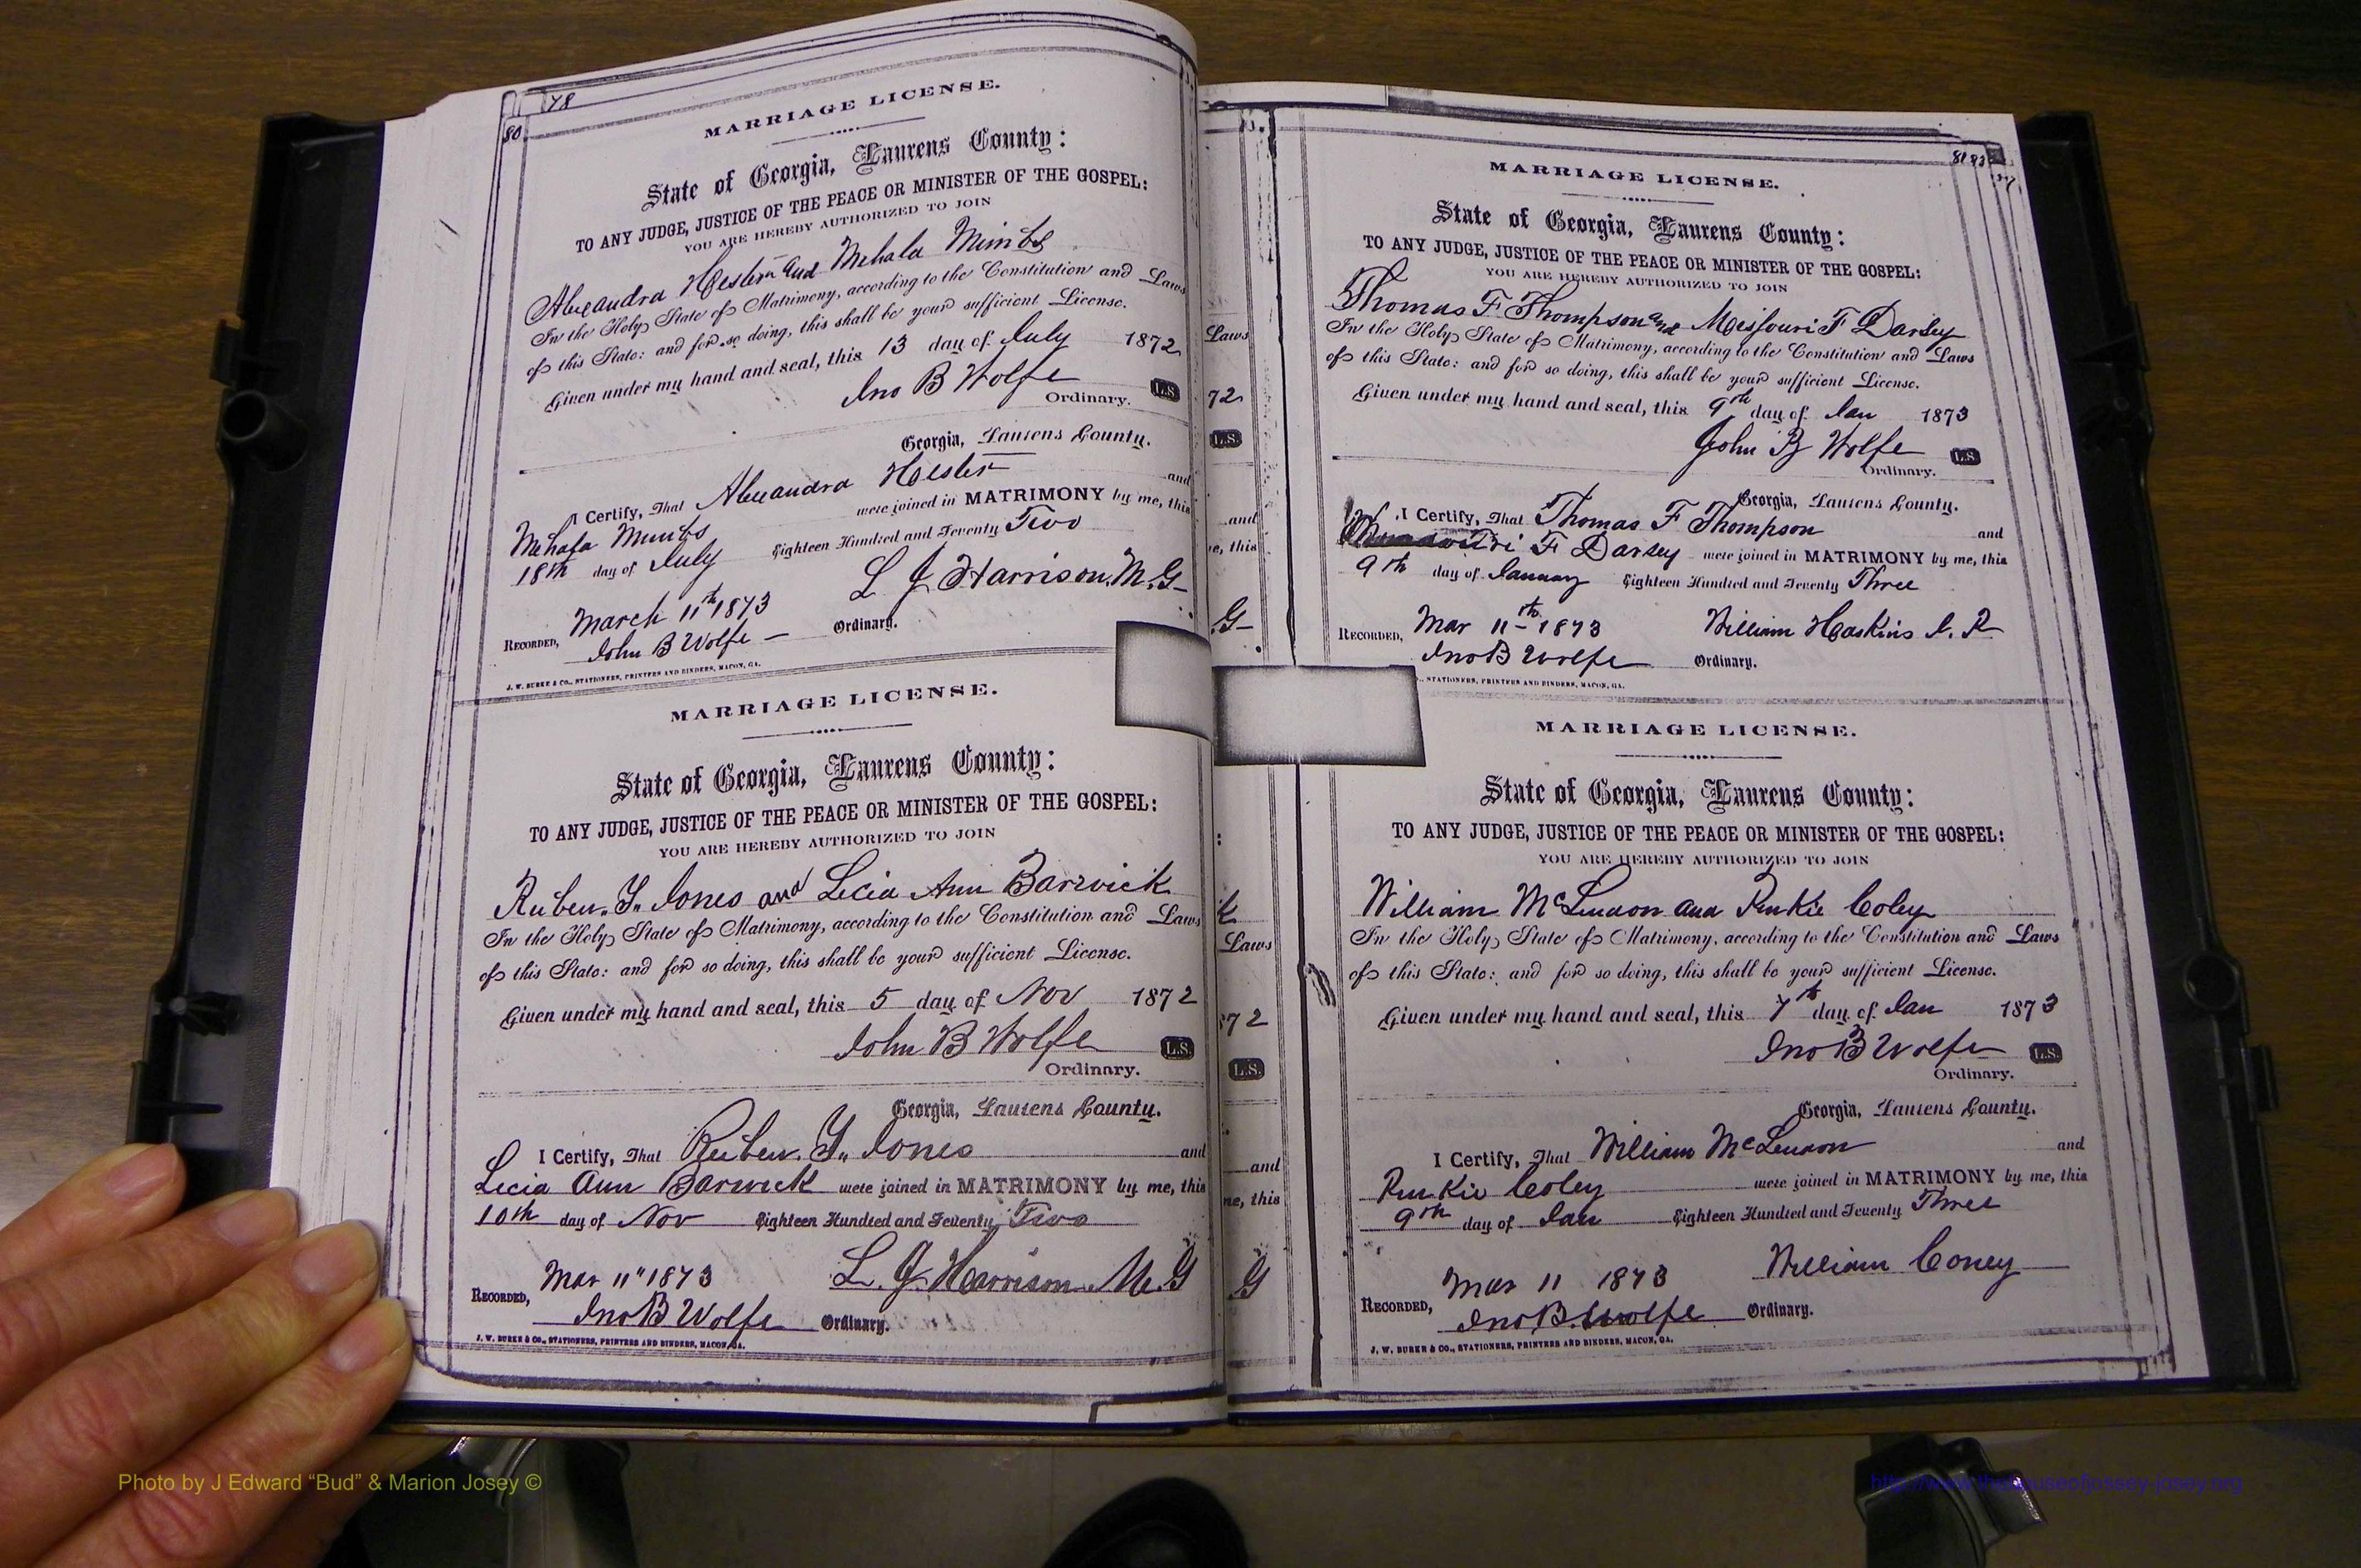 78
80
MARRIAGE LICENSE.
State of Georgia, Laurens County:
TO ANY JUDGE, JUSTICE OF THE PEACE OR MINISTER OF THE GOSPEL:
YOU ARE HEREBY AUTHORIZED TO JOIN
Alexandra Hester and Mehala Mimbs
In the Holy State of Matrimony, according to the Constitution and Laws
of this State: and for so doing, this shall be your sufficient License.
Given under my hand and seal, this 13 day of July 1872
Jno B Wolfe L.S.
Ordinary.
Georgia, Laurens County.
I Certify, That Alexandra Hester and
Mehala Mimbs were joined in MATRIMONY by me, this
18th day of July Eighteen Hundred and Seventy Two
L J Harrison M.G
Recorded, March 11th 1873
John B Wolfe Ordinary.
J. W. BURKE & CO., STATIONERS, PRINTERS AND BINDERS, MACON, GA.
MARRIAGE LICENSE.
State of Georgia, Laurens County:
TO ANY JUDGE, JUSTICE OF THE PEACE OR MINISTER OF THE GOSPEL:
YOU ARE HEREBY AUTHORIZED TO JOIN
Ruben. Y. Jones and Lecia Ann Barwick
In the Holy State of Matrimony, according to the Constitution and Laws
of this State: and for so doing, this shall be your sufficient License.
Given under my hand and seal, this 5 day of Nov 1872
John B Wolfe L.S.
Ordinary.
Georgia, Laurens County.
I Certify, That Reuben. Y. Jones and
Lecia Ann Barwick were joined in MATRIMONY by me, this
10th day of Nov Eighteen Hundred and Seventy Two
L. J Harrison M.G
Recorded, Mar 11" 1873
Jno B Wolfe Ordinary.
J. W. BURKE & CO., STATIONERS, PRINTERS AND BINDERS, MACON, GA.
Laws
72
L.S.
and
e, this
G
k
Laws
72
L.S.
and
me, this
G
81 83
MARRIAGE LICENSE.
State of Georgia, Laurens County:
TO ANY JUDGE, JUSTICE OF THE PEACE OR MINISTER OF THE GOSPEL:
YOU ARE HEREBY AUTHORIZED TO JOIN
Thomas F Thompson and Missouri F Darsey
In the Holy State of Matrimony, according to the Constitution and Laws
of this State: and for so doing, this shall be your sufficient License.
Given under my hand and seal, this 9th day of Jan 1873
John B Wolfe L.S.
Ordinary.
Georgia, Laurens County.
I Certify, That Thomas F Thompson and
F Darsey were joined in MATRIMONY by me, this
9th day of January Eighteen Hundred and Seventy Three
William Haskins J. P.
Recorded, Mar 11th 1873
Jno B Wolfe Ordinary.
STATIONERS, PRINTERS AND BINDERS, MACON, GA.
MARRIAGE LICENSE.
State of Georgia, Laurens County:
TO ANY JUDGE, JUSTICE OF THE PEACE OR MINISTER OF THE GOSPEL:
YOU ARE HEREBY AUTHORIZED TO JOIN
William McLendon and Pinkie Coley
In the Holy State of Matrimony, according to the Constitution and Laws
of this State: and for so doing, this shall be your sufficient License.
Given under my hand and seal, this 7th day of Jan 1873
Jno B Wolfe L.S.
Ordinary.
Georgia, Laurens County.
I Certify, That William McLendon and
Pinkie Coley were joined in MATRIMONY by me, this
9th day of Jan Eighteen Hundred and Seventy Three
William Coney
Recorded, Mar 11 1873
Jno B. Wolfe Ordinary.
J. W. BURKE & CO., STATIONERS, PRINTERS AND BINDERS, MACON, GA.
Photo by J Edward “Bud” & Marion Josey ©
http://www.thehouseofjossey-josey.org